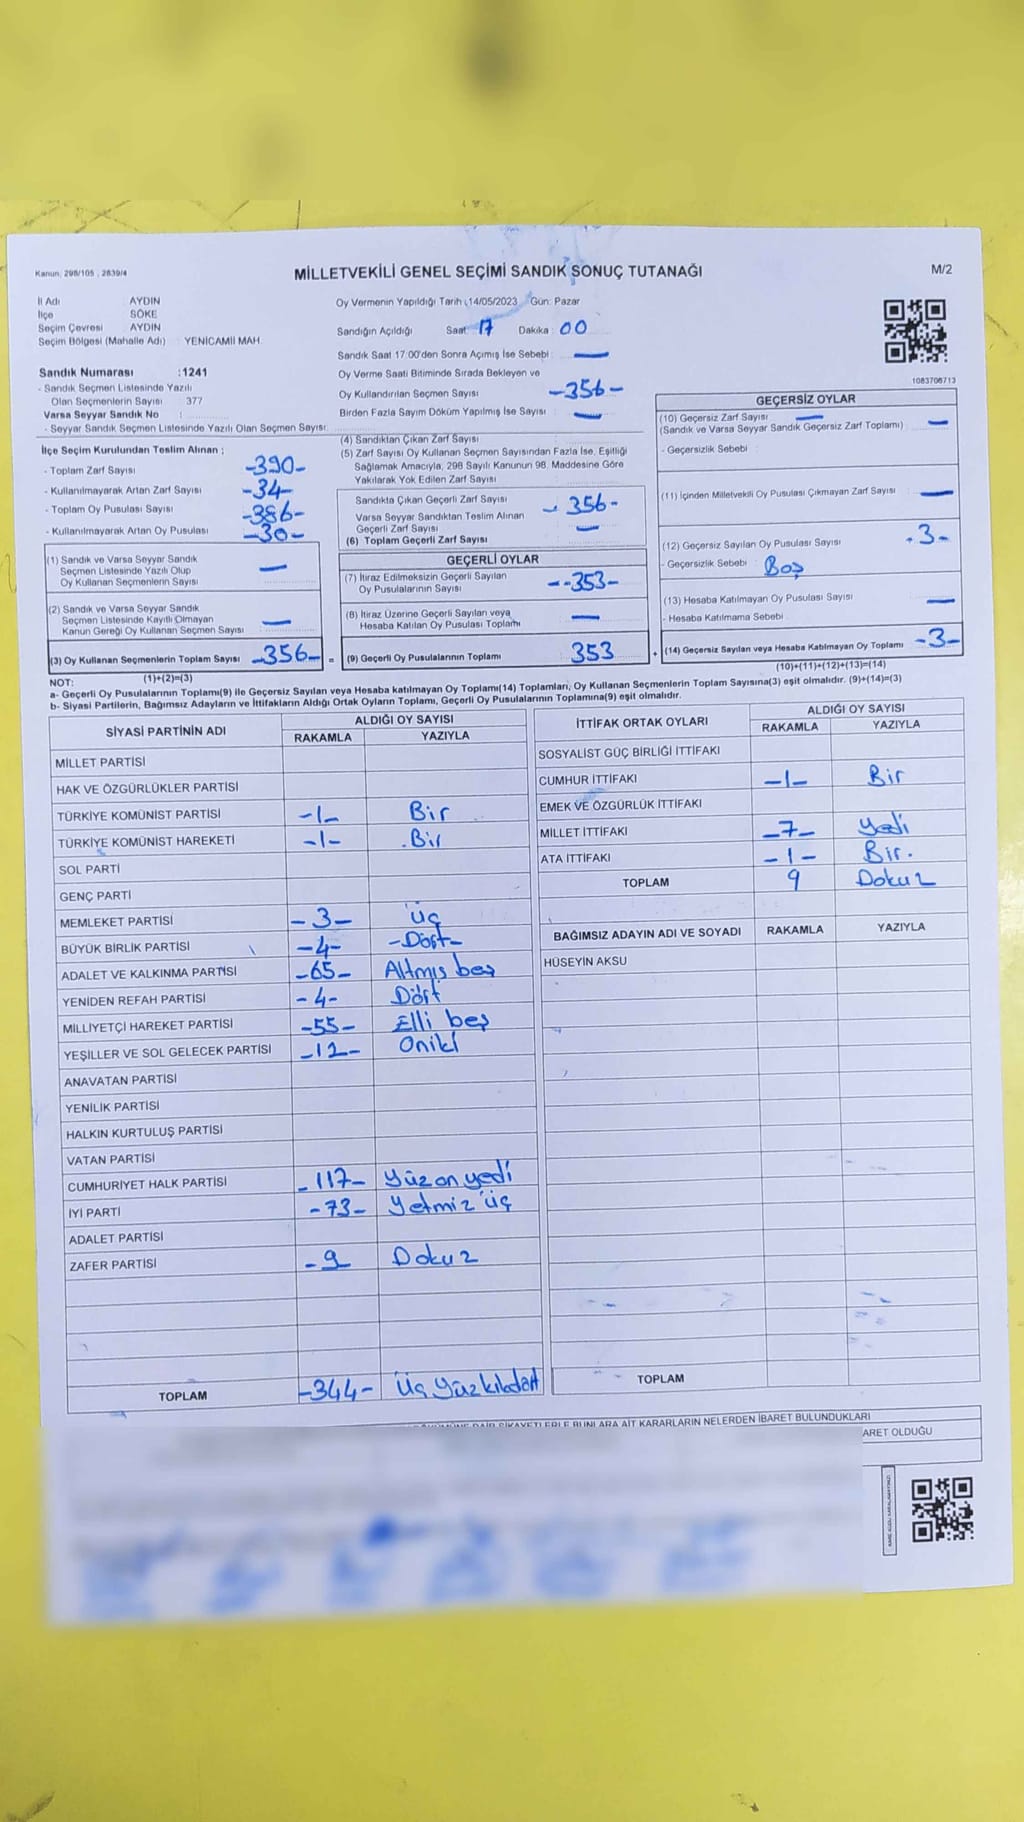 Kanun: 298/105 ; 2839/4
MİLLETVEKİLİ GENEL SEÇİMİ SANDIK SONUÇ TUTANAĞI
M/2
İl Adı AYDIN
İlçe SÖKE
Seçim Çevresi AYDIN
Seçim Bölgesi (Mahalle Adı) : YENİCAMİİ MAH.
Sandık Numarası :1241
- Sandık Seçmen Listesinde Yazılı
Olan Seçmenlerin Sayısı 377
Varsa Seyyar Sandık No :
- Seyyar Sandık Seçmen Listesinde Yazılı Olan Seçmen Sayısı:
Oy Vermenin Yapıldığı Tarih :14/05/2023 Gün: Pazar
Sandığın Açıldığı Saat: 17 Dakika : 00
Sandık Saat 17:00'den Sonra Açımış İse Sebebi :
Oy Verme Saati Bitiminde Sırada Bekleyen ve
Oy Kullandırılan Seçmen Sayısı -356-
Birden Fazla Sayım Döküm Yapılmış İse Sayısı
1083706713
İlçe Seçim Kurulundan Teslim Alınan ;
- Toplam Zarf Sayısı -390-
- Kullanılmayarak Artan Zarf Sayısı -34-
- Toplam Oy Pusulası Sayısı -386-
- Kullanılmayarak Artan Oy Pusulası -30-
(1) Sandık ve Varsa Seyyar Sandık
Seçmen Listesinde Yazılı Olup
Oy Kullanan Seçmenlerin Sayısı
(2) Sandık ve Varsa Seyyar Sandık
Seçmen Listesinde Kayıtlı Olmayan
Kanun Gereği Oy Kullanan Seçmen Sayısı
(3) Oy Kullanan Seçmenlerin Toplam Sayısı -356- =
(1)+(2)=(3)
(4) Sandıktan Çıkan Zarf Sayısı
(5) Zarf Sayısı Oy Kullanan Seçmen Sayısından Fazla İse, Eşitliği
Sağlamak Amacıyla, 298 Sayılı Kanunun 98. Maddesine Göre
Yakılarak Yok Edilen Zarf Sayısı
Sandıkta Çıkan Geçerli Zarf Sayısı - 356-
Varsa Seyyar Sandıktan Teslim Alınan
Geçerli Zarf Sayısı
(6) Toplam Geçerli Zarf Sayısı
GEÇERLİ OYLAR
(7) İtiraz Edilmeksizin Geçerli Sayılan
Oy Pusulalarının Sayısı --353-
(8) İtiraz Üzerine Geçerli Sayılan veya
Hesaba Katılan Oy Pusulası Toplamı
(9) Geçerli Oy Pusulalarının Toplamı 353 +
GEÇERSİZ OYLAR
(10) Geçersiz Zarf Sayısı
(Sandık ve Varsa Seyyar Sandık Geçersiz Zarf Toplamı)
- Geçersizlik Sebebi
(11) İçinden Milletvekili Oy Pusulası Çıkmayan Zarf Sayısı
(12) Geçersiz Sayılan Oy Pusulası Sayısı -3-
- Geçersizlik Sebebi : Boş
(13) Hesaba Katılmayan Oy Pusulası Sayısı
- Hesaba Katılmama Sebebi :
(14) Geçersiz Sayılan veya Hesaba Katılmayan Oy Toplamı -3-
(10)+(11)+(12)+(13)=(14)
NOT:
a- Geçerli Oy Pusulalarının Toplamı(9) ile Geçersiz Sayılan veya Hesaba katılmayan Oy Toplamı(14) Toplamları, Oy Kullanan Seçmenlerin Toplam Sayısına(3) eşit olmalıdır. (9)+(14)=(3)
b- Siyasi Partilerin, Bağımsız Adayların ve İttifakların Aldığı Ortak Oyların Toplamı, Geçerli Oy Pusulalarının Toplamına(9) eşit olmalıdır.
SİYASİ PARTİNİN ADI ALDIĞI OY SAYISI
RAKAMLA YAZIYLA
MİLLET PARTİSİ
HAK VE ÖZGÜRLÜKLER PARTİSİ
TÜRKİYE KOMÜNİST PARTİSİ -1- Bir
TÜRKİYE KOMÜNİST HAREKETİ -1- Bir
SOL PARTİ
GENÇ PARTİ
MEMLEKET PARTİSİ -3- Üç
BÜYÜK BİRLİK PARTİSİ -4- -Dört-
ADALET VE KALKINMA PARTİSİ -65- Altmış beş
YENİDEN REFAH PARTİSİ -4- Dört
MİLLİYETÇİ HAREKET PARTİSİ -55- Elli beş
YEŞİLLER VE SOL GELECEK PARTİSİ -12- Oniki
ANAVATAN PARTİSİ
YENİLİK PARTİSİ
HALKIN KURTULUŞ PARTİSİ
VATAN PARTİSİ
CUMHURİYET HALK PARTİSİ -117- Yüz on yedi
İYİ PARTİ -73- Yetmiz üç
ADALET PARTİSİ
ZAFER PARTİSİ -9 Dokuz
TOPLAM -344- Üç yüz
İTTİFAK ORTAK OYLARI ALDIĞI OY SAYISI
RAKAMLA YAZIYLA
SOSYALİST GÜÇ BİRLİĞİ İTTİFAKI
CUMHUR İTTİFAKI -1- Bir
EMEK VE ÖZGÜRLÜK İTTİFAKI
MİLLET İTTİFAKI -7- Yedi
ATA İTTİFAKI -1- Bir.
TOPLAM 9 Dokuz
BAĞIMSIZ ADAYIN ADI VE SOYADI RAKAMLA YAZIYLA
HÜSEYİN AKSU
TOPLAM
ŞİKAYETLERLE BUNLARA AİT KARARLARIN NELERDEN İBARET BULUNDUKLARI
ARET OLDUĞU